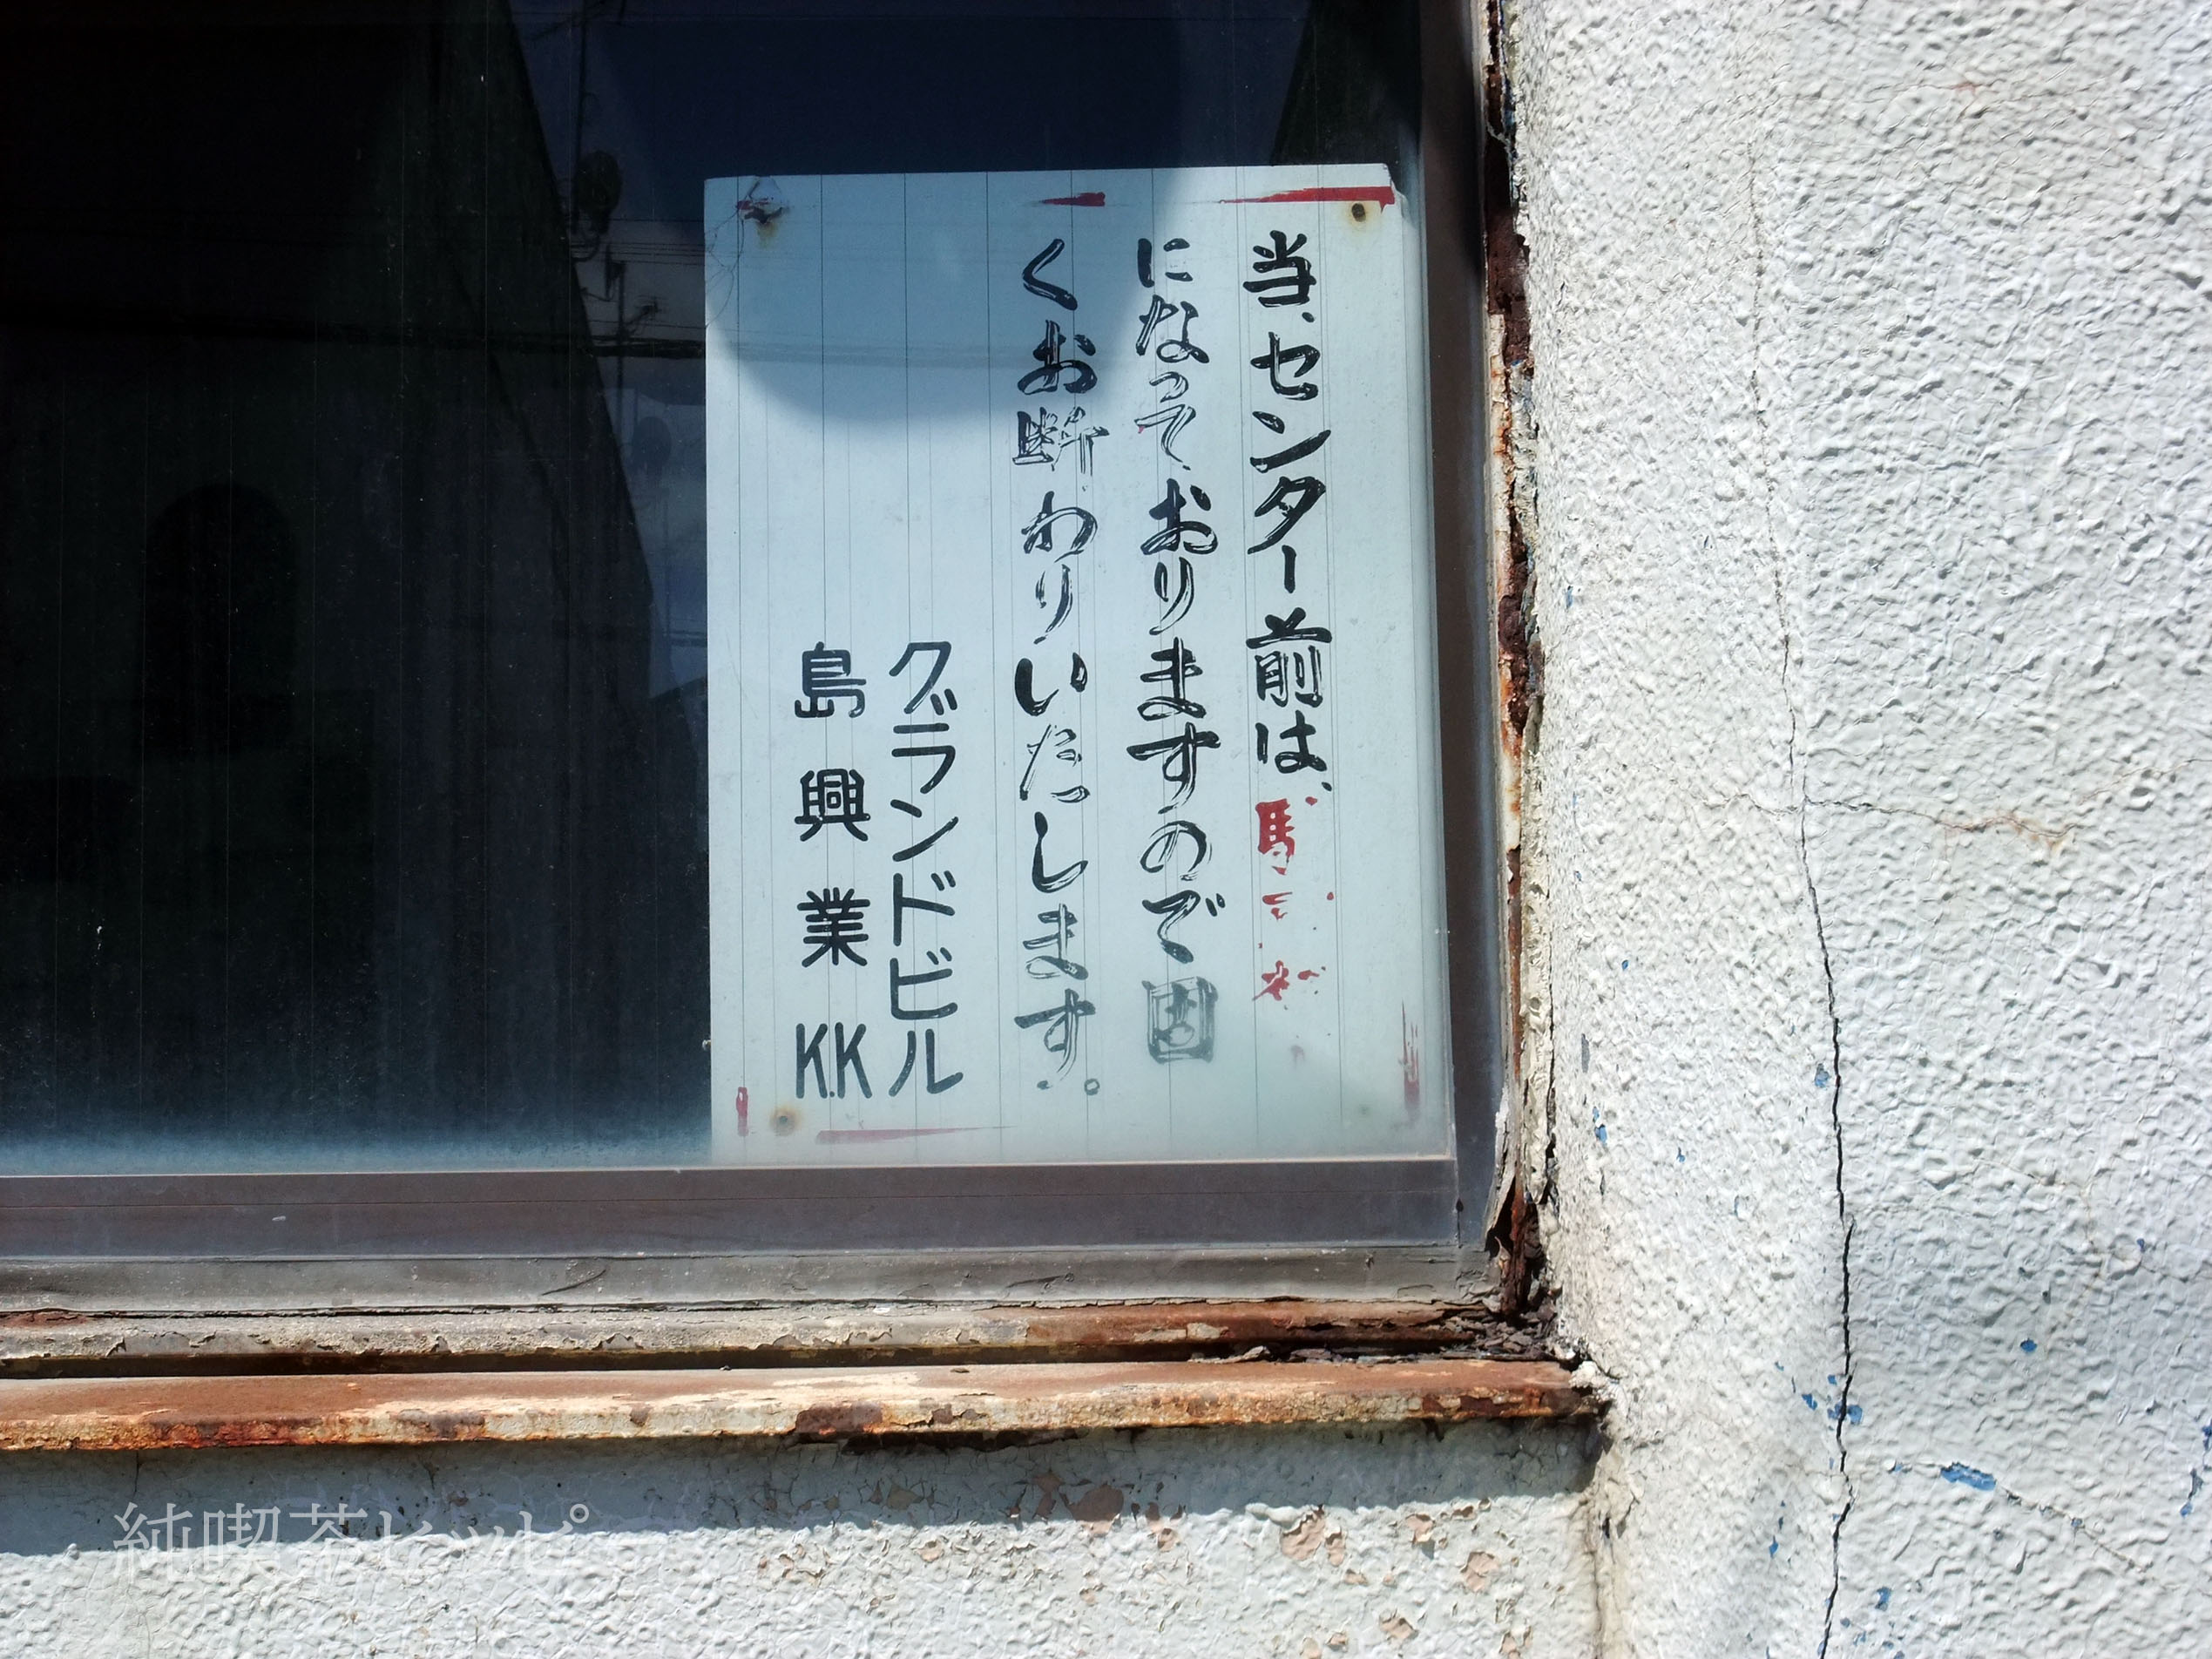 当センター前は、駐車禁
になっておりますので固
くお断わりいたします。
グランドビル
島興業K.K
純喫茶ヒッピー